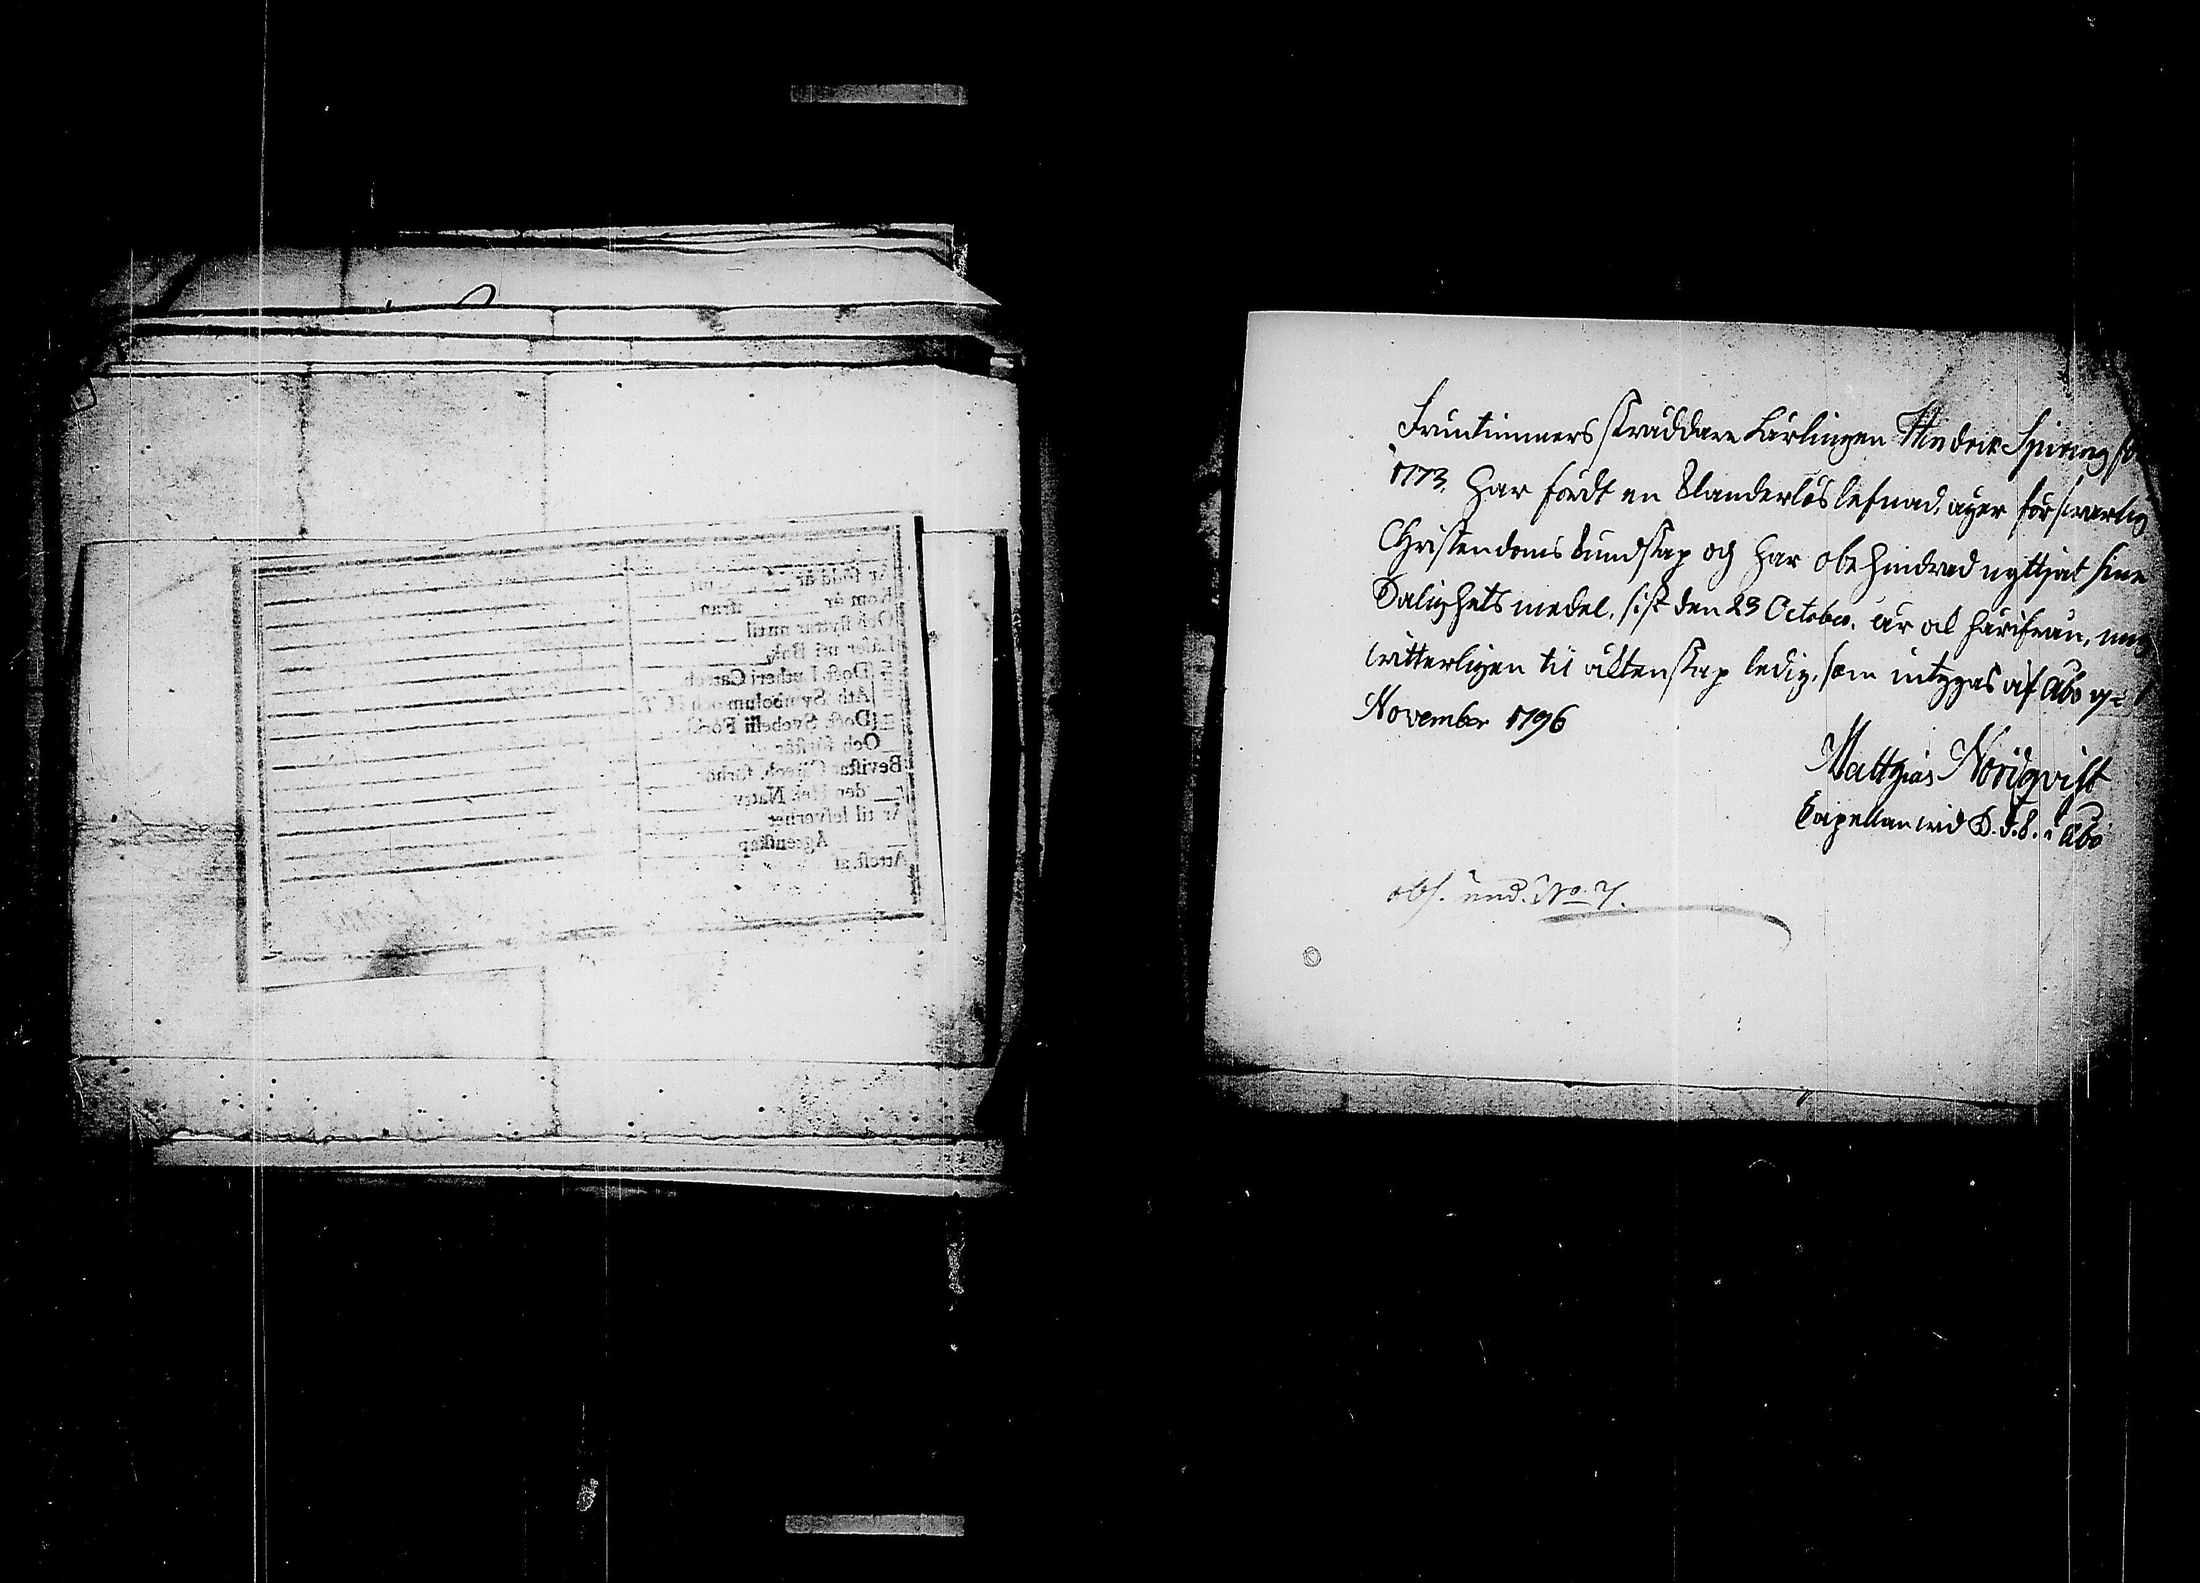 Är född år
Kom år ifrån
Och flyttar nu til
Läser uti Bok
Doct. Lutheri Catech
Ath. Symbolum och
Doct. Svebelii Förkl
Och förstår
Bevistat Catech. förhör
den Hel. Nattv
Är til lefvernet
Ägtenskap
Attest. af
Fruntimmers skräddare Lärlingen Hindric Spiring
1773. har fördt en Klanderlös lefnad, äger försvarlig
Christendoms kundskap och har obehindrad nyttjat sine
Salighets medel, sist den 23 Octobr. är ock härifrån,
witterligen til äktenskap ledig, som intygas af Åbo
November 1796
Matthias Nordqvist
Capellan wid S. F. F. i Åbo
obs. und. No 7.